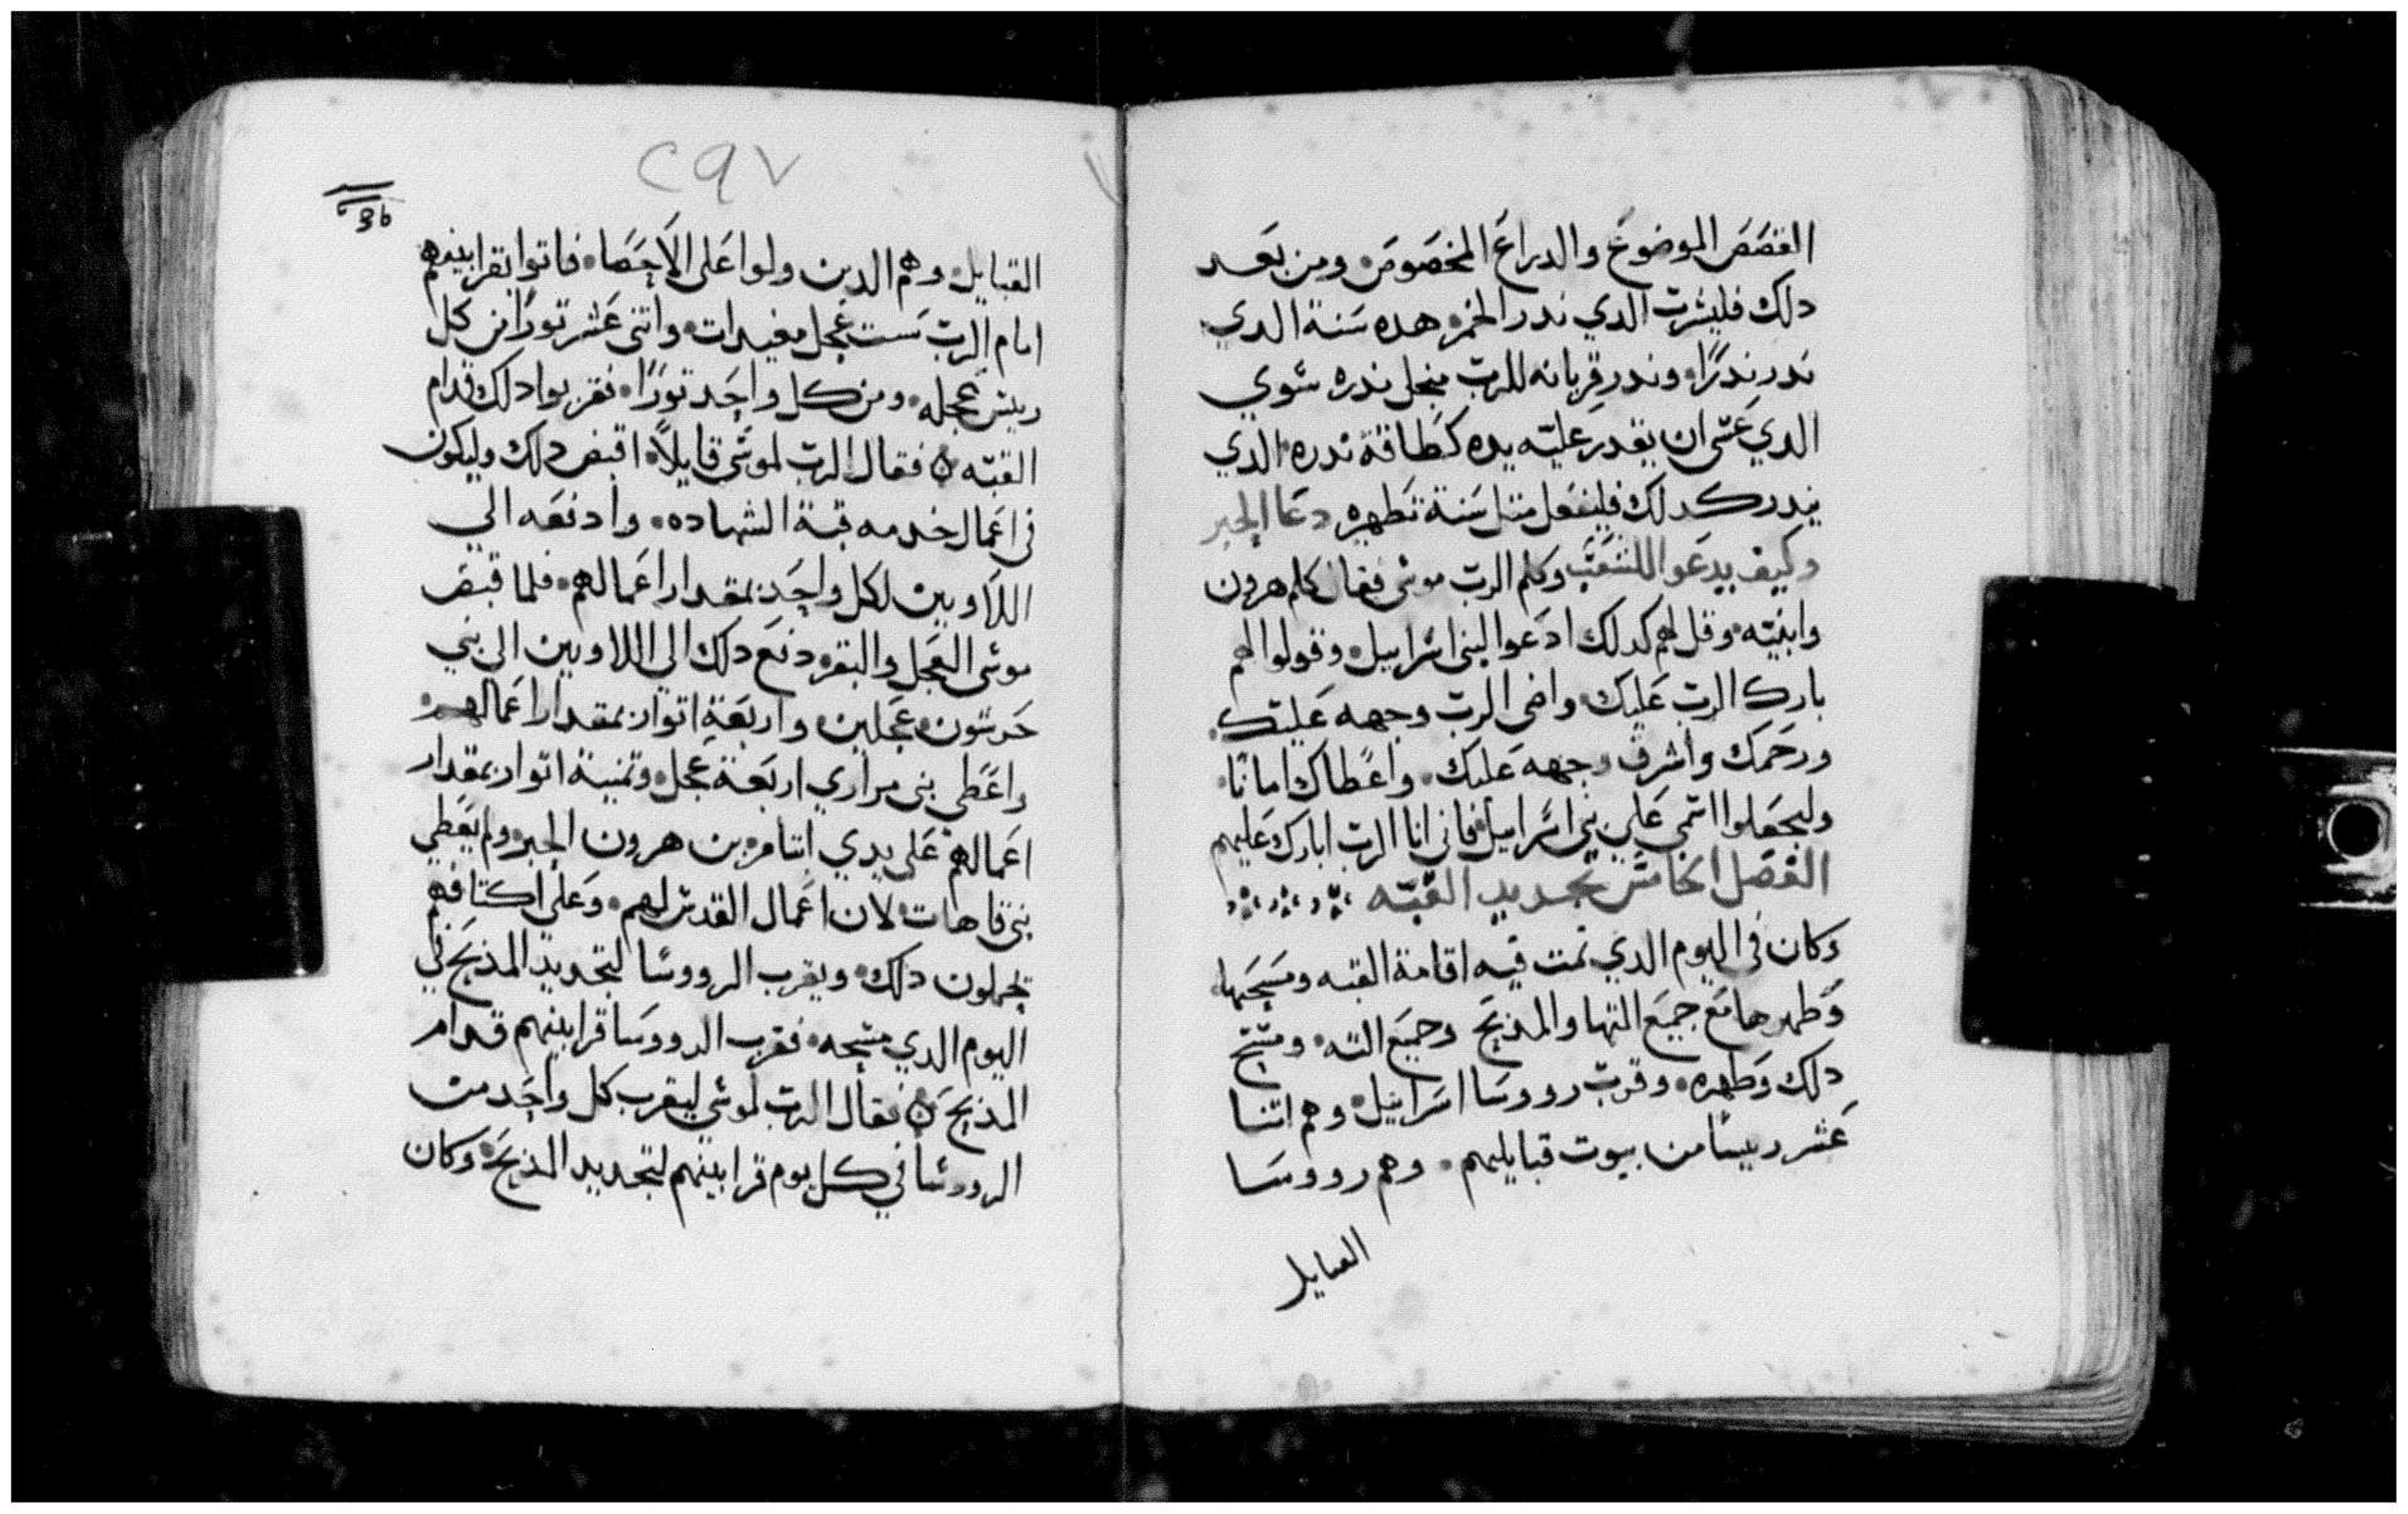 القصص الموضوع والدراع المخصوص ومن بعد
دلك فليشرب الدي ندر الخمر هده سنة الدي
ندر ندرًا وندر قربانه للرب منجل ندره سوي
الدي عسى ان يقدر عليه يده كطاقة ندره الدي
يندر كدلك فليفعل متل سنة تطهره دعا الحبر
وكيف يدعو للشعب وكلم الرب موسى فقال كلم هرون
وابنيه وقل لهم كدلك ادعوا لبني اسراييل وقولوا لهم
بارك الرب عليك واضى الرب وجهه عليك
ورحمك واشرف وجهه عليك واعطاك امانًا
وليجعلوا اسمي علي بني اسراييل فاني انا الرب ابارك عليهم
الفصل الخامس تجديد القبه
وكان في اليوم الدي تمت فيه اقامة القبه ومسحها
وطهرها مع جميع التها والمذبح وجميع الته ومسح
دلك وطهره وقرب رووسا اسراييل وهم اتنا
عشر رييسًا من بيوت قبايلهم وهم رووسا
القبايل
٢٩٧
القبايل وهم الدين ولوا على الاحصا فاتوا بقرابينهم
امام الرب ست عجل مغيرات واتنى عشر تورًا من كل
رييس عجله ومن كل واحد تورًا فقربوا دلك قدام
القبه فقال الرب لموسى قايلاً اقبض دلك وليكون
في اعمال خدمه قبة الشهاده وادفعه الي
اللاويين لكل واحد بمقدار اعمالهم فلما قبض
موسى العجل والبقر دفع دلك الي اللاويين الى بني
جرشون عجلين واربعة اتوار بمقدار اعمالهم
واعطى بني مراري اربعة عجل وتمنية اتوار بمقدار
اعمالهم على يدي ايتامر بن هرون الحبر ولم يعطي
بني قاهات لان اعمال القدس لهم وعلى اكتافهم
يحملون دلك ويقرب الرووسا لتجديد المذبح في
اليوم الدي مسحه فقرب الرووسا قرابينهم قدام
المذبح فقال الرب لموسى ليقرب كل واحد من
الرووسا في كل يوم قرابينهم لتجديد المذبح وكان